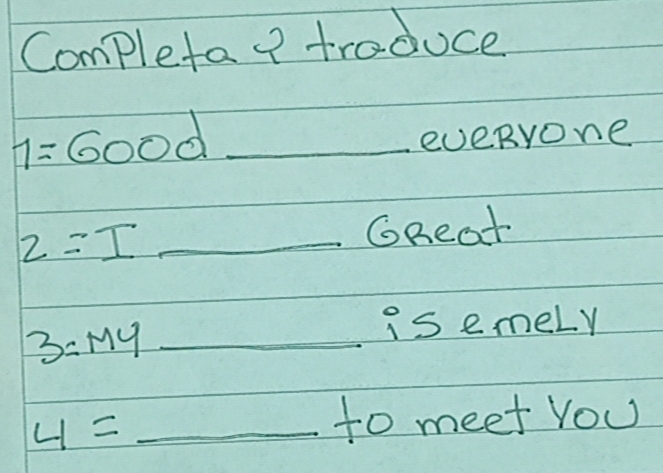 Completa y traduce
1=Good ________ everyone
2=I ________ Great
3=My ________ is emely
4=________ to meet You